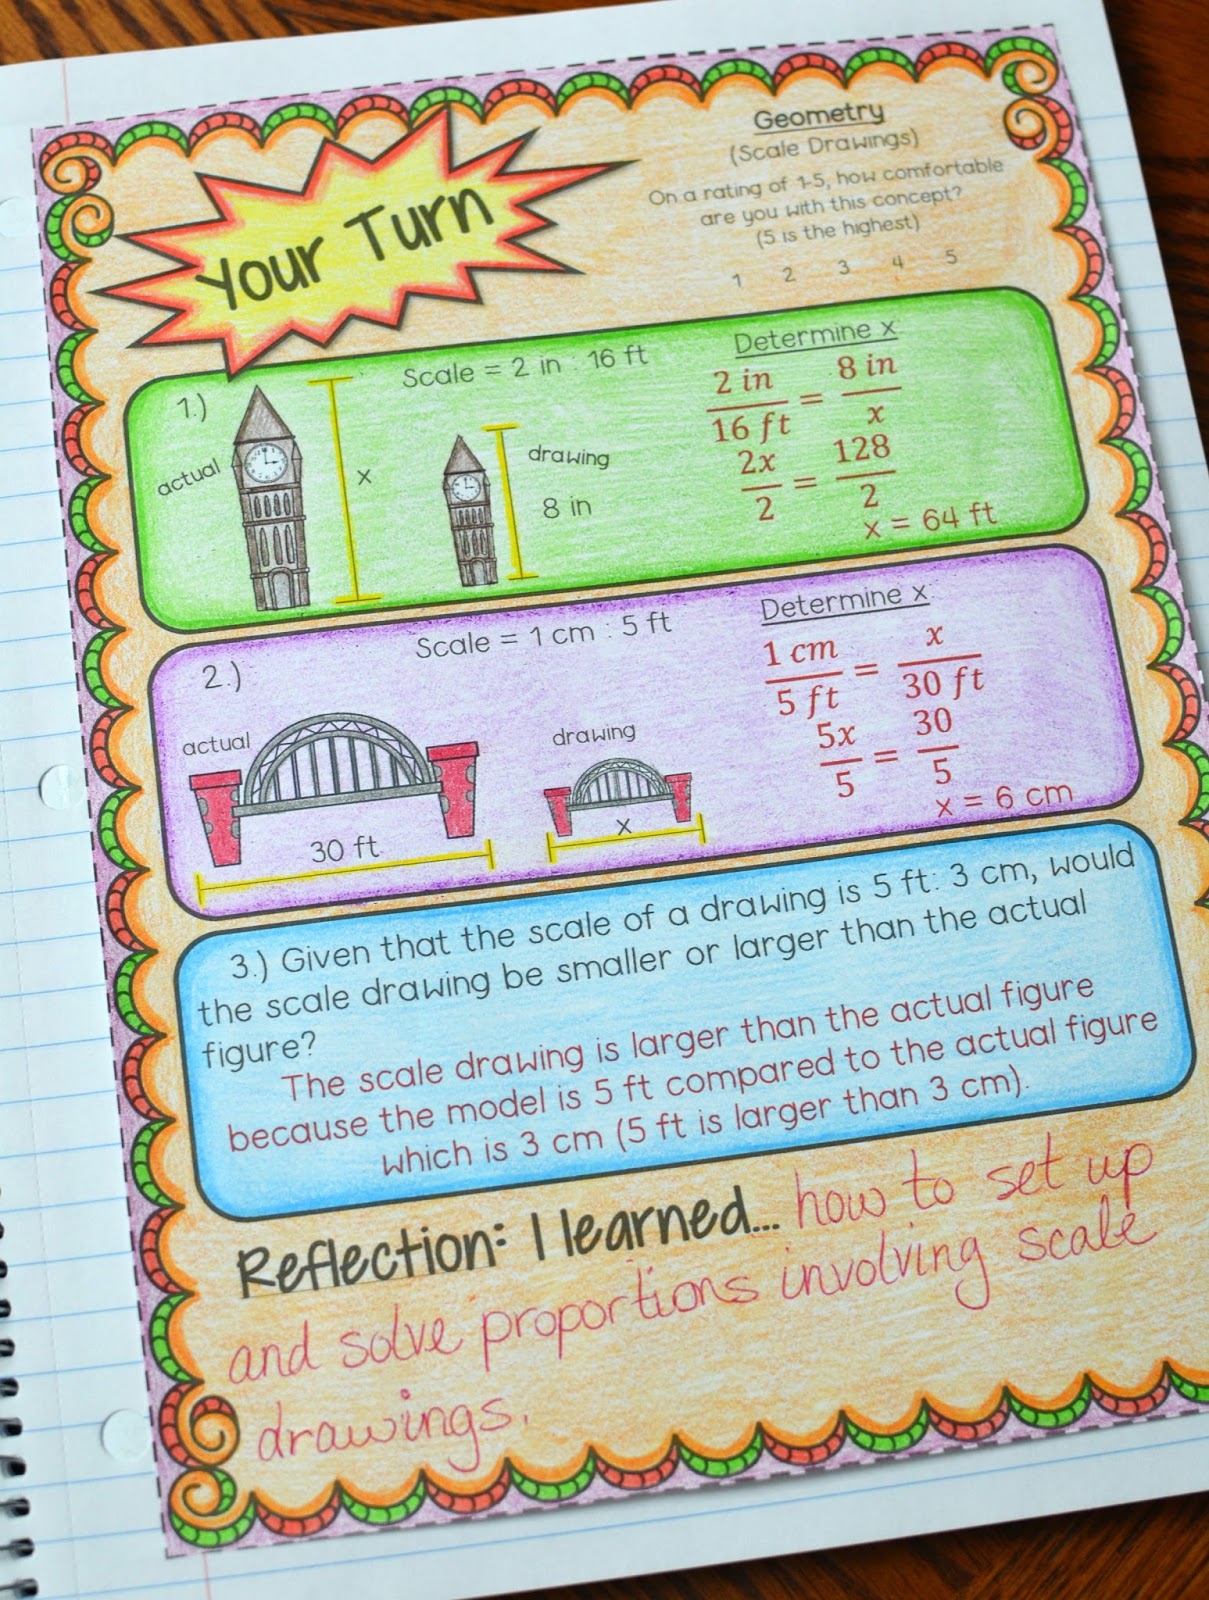 Your Turn
Geometry
(Scale Drawings)
On a rating of 1-5, how comfortable
are you with this concept?
(5 is the highest)
1 2 3 4 5
1.)
Scale = 2 in : 16 ft
actual
x
drawing
8 in
Determine x:
2 in / 16 ft = 8 in / x
2x / 2 = 128 / 2
x = 64 ft
2.)
Scale = 1 cm : 5 ft
actual
30 ft
drawing
x
Determine x:
1 cm / 5 ft = x / 30 ft
5x / 5 = 30 / 5
x = 6 cm
3.) Given that the scale of a drawing is 5 ft: 3 cm, would
the scale drawing be smaller or larger than the actual
figure?
The scale drawing is larger than the actual figure
because the model is 5 ft compared to the actual figure
which is 3 cm (5 ft is larger than 3 cm).
Reflection: I learned... how to set up
and solve proportions involving scale
drawings.